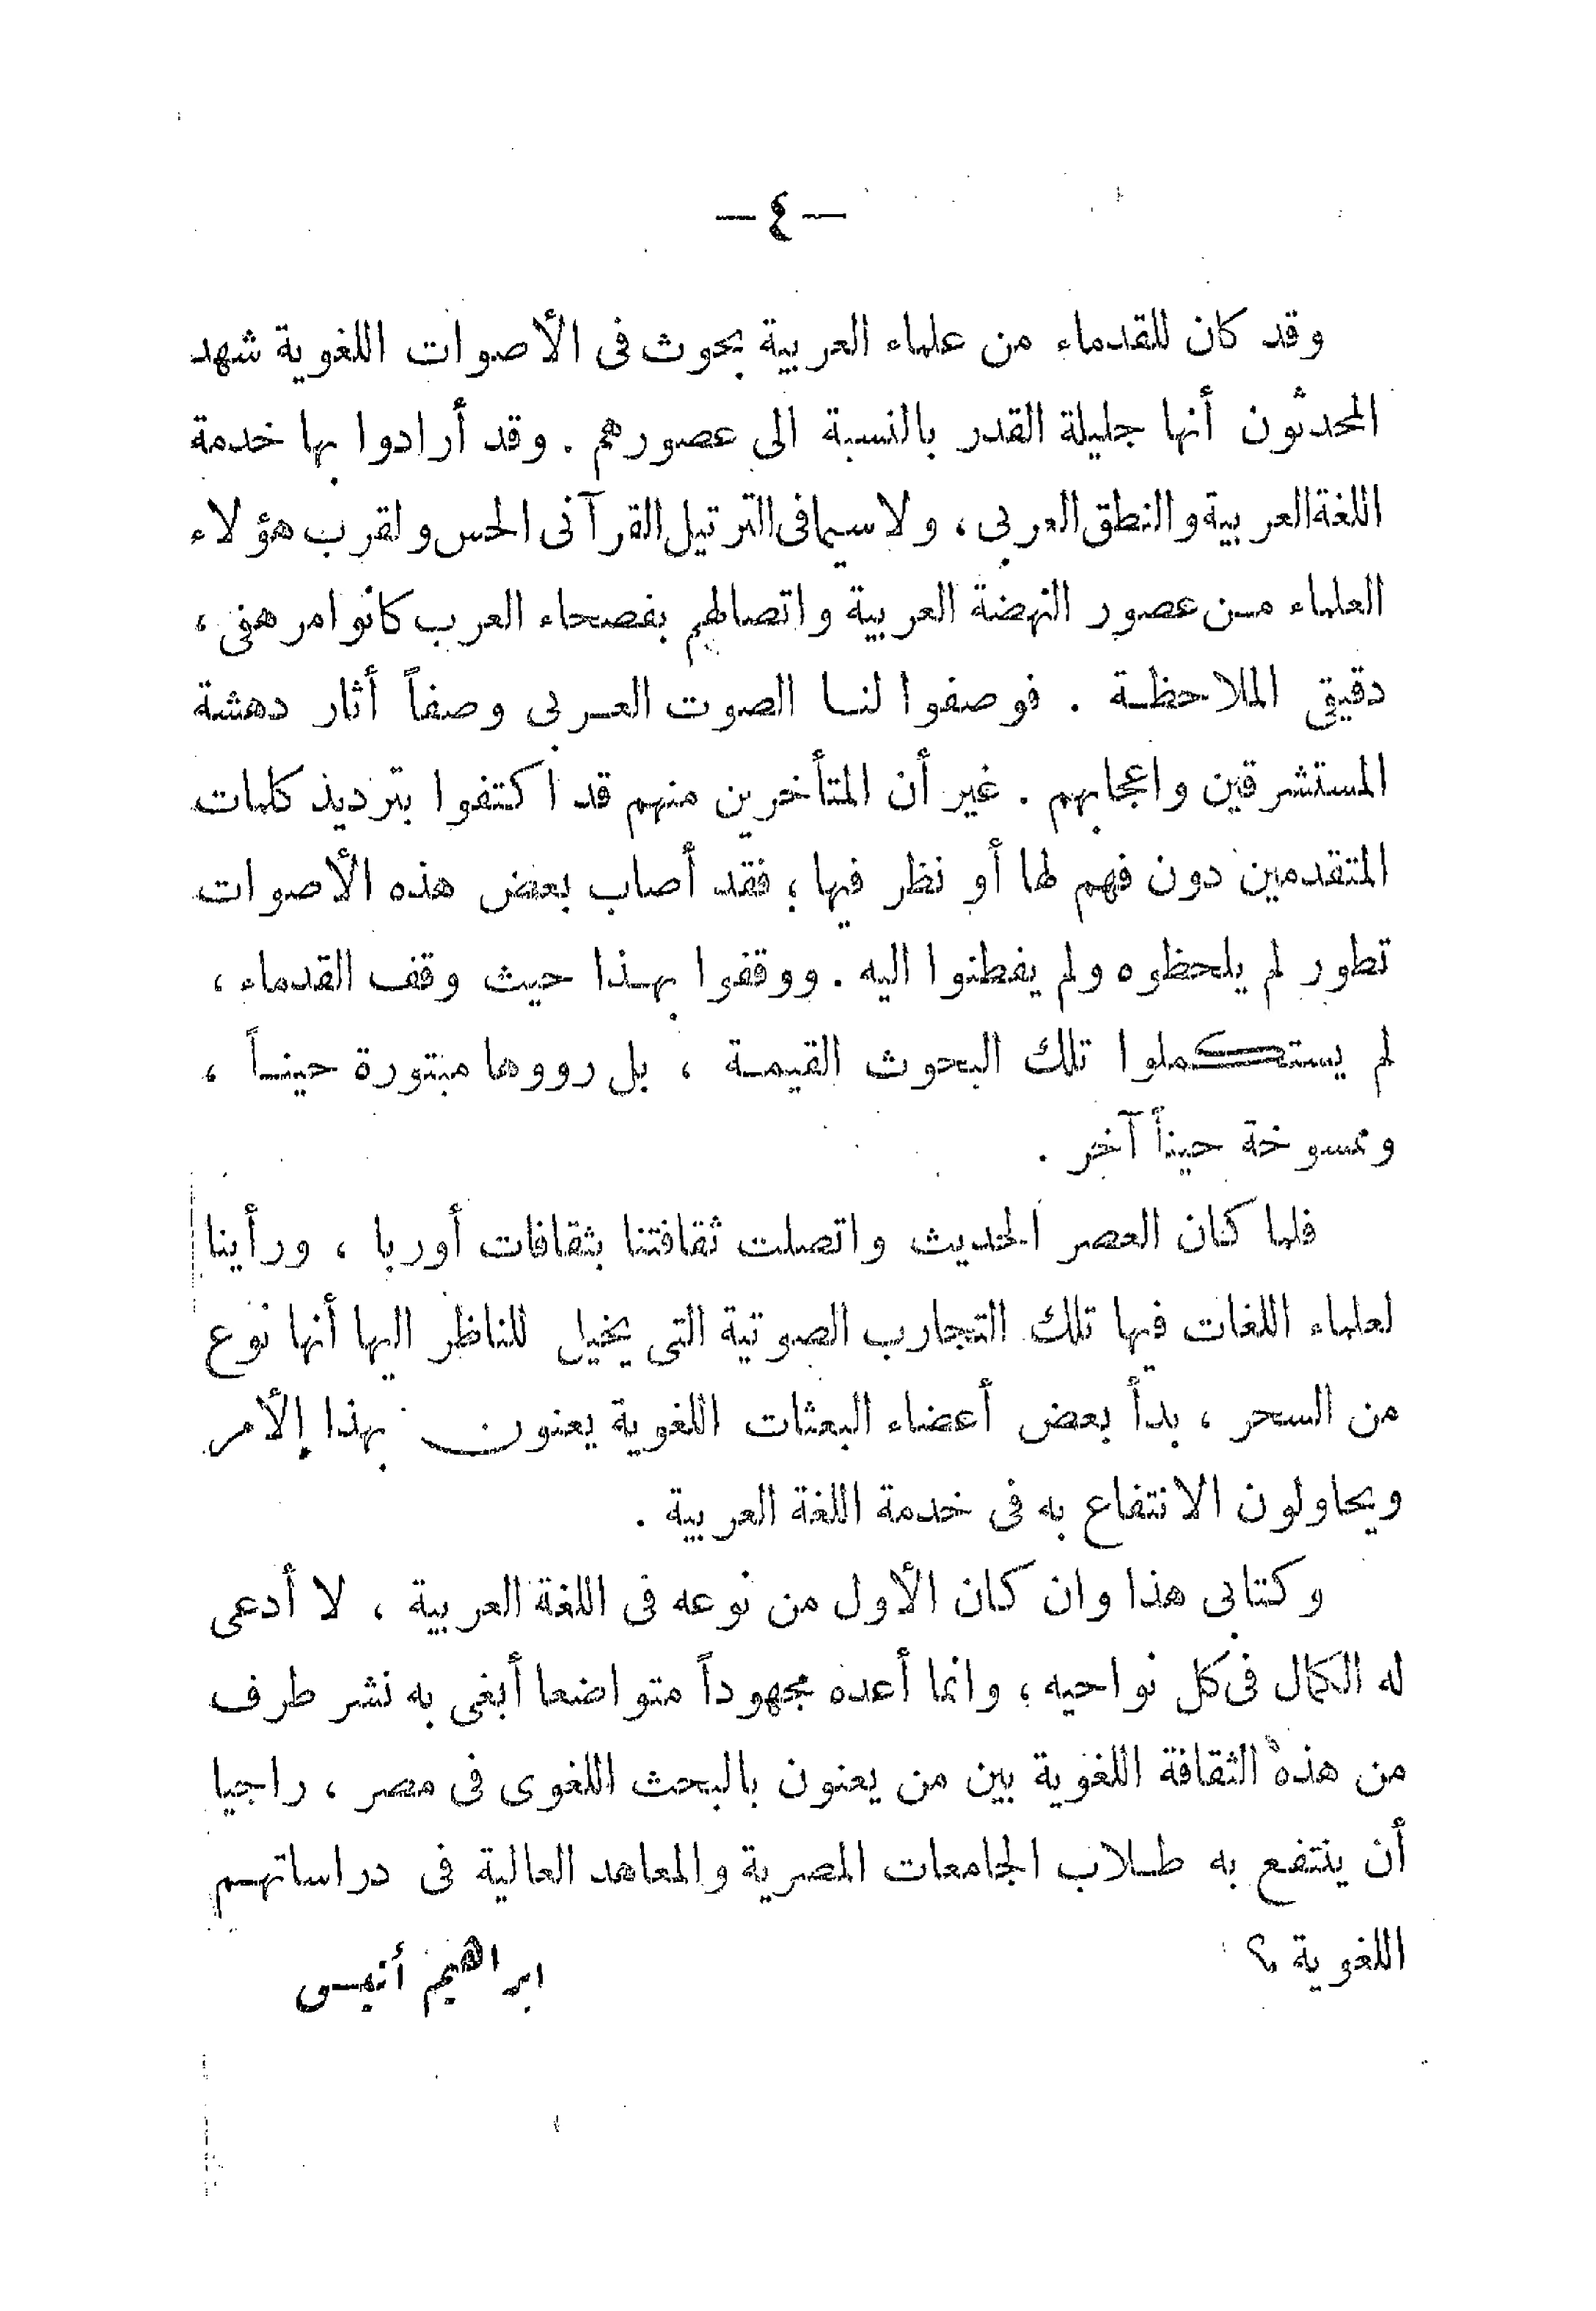 — ٤ —
وقد كان للقدماء من علماء العربية بحوث فى الأصوات اللغوية شهد
المحدثون أنها جليلة القدر بالنسبة الى عصورهم . وقد أرادوا بها خدمة
اللغة العربية والنطق العربى ، ولا سيما فى الترتيل القرآنى الحس ولقرب هؤلاء
العلماء من عصور النهضة العربية واتصالهم بفصحاء العرب كانوا مرهفى ،
دقيقى الملاحظة . فوصفوا لنا الصوت العربى وصفاً أثار دهشة
المستشرقين واعجابهم . غير أن المتأخرين منهم قد اكتفوا بترديد كلمات
المتقدمين دون فهم لها أو نظر فيها ؛ فقد أصاب بعض هذه الأصوات
تطور لم يلحظوه ولم يفطنوا اليه . ووقفوا بهذا حيث وقف القدماء ،
لم يستكملوا تلك البحوث القيمة ، بل رووها مبتورة حيناً ،
وممسوخة حيناً آخر .
فلما كان العصر الحديث واتصلت ثقافتنا بثقافات أوربا ، ورأينا
لعلماء اللغات فيها تلك التجارب الصوتية التى يخيل للناظر اليها أنها نوع
من السحر ، بدأ بعض أعضاء البعثات اللغوية يعنون بهذا الأمر
ويحاولون الانتفاع به فى خدمة اللغة العربية .
وكتابى هذا وان كان الأول من نوعه فى اللغة العربية ، لا أدعى
له الكمال فى كل نواحيه ، وانما أعده مجهوداً متواضعا أبغى به نشر طرف
من هذه الثقافة اللغوية بين من يعنون بالبحث اللغوى فى مصر ، راجيا
أن ينتفع به طلاب الجامعات المصرية والمعاهد العالية فى دراساتهم
اللغوية ؟
ابراهيم أنيس